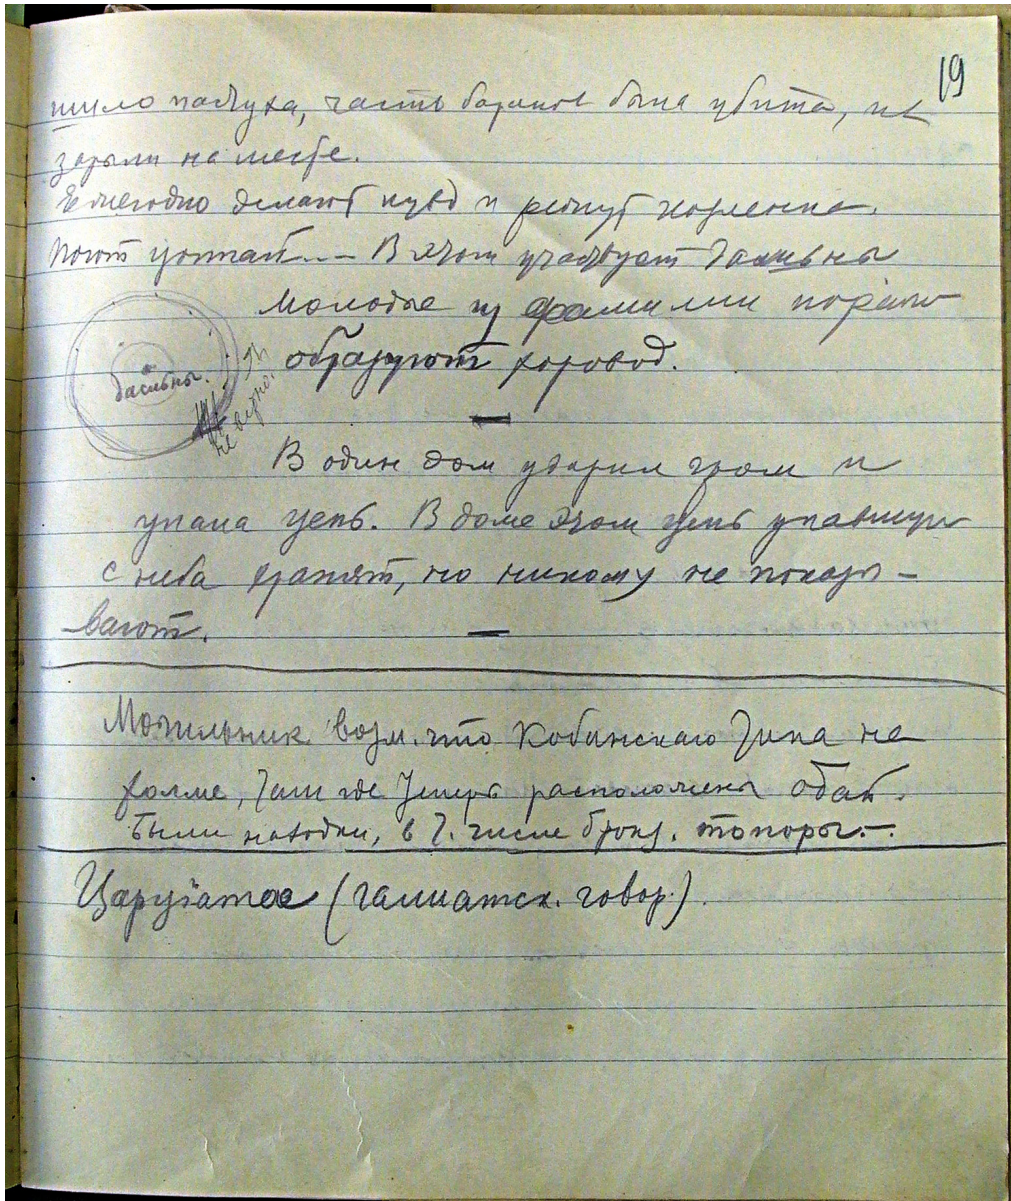 19
шило пастуха, часть баранов была убита, их
зарыли на месте.
Ежегодно делают кувд и режут козленка.
Поют цоппай... – В этом участвуют
Молодые из фамилии
образуют хоровод.
не верно.
В один дом ударил гром и
упала цепь. В доме этом цепь упавшую
с неба хранят, но никому не показы-
вают.
Могильник возм. что Кобанскаго типа на
холме, там где теперь расположены обак.
Были находки, в т. числе бронз. топоры.–.
Царциатае (галиатск. говор.)